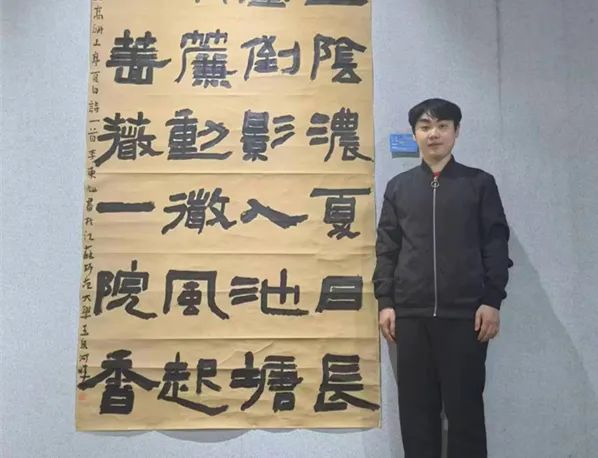 陰濃夏日長
倒影入池塘
簾動微風起
薔薇一院香
高駢山亭夏日詩一首李東書於江蘇師范大學玉泉河畔